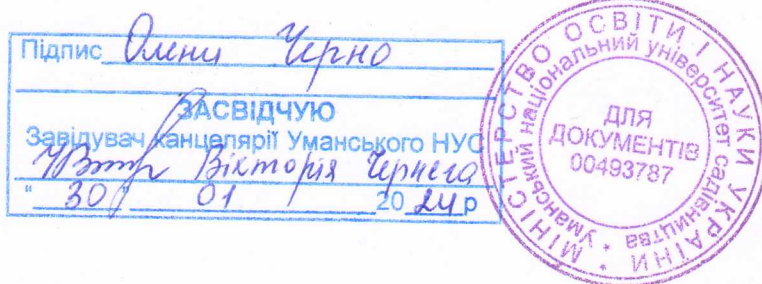 Підпис Олени Черно
ЗАСВІДЧУЮ
Завідувач канцелярії Уманського НУС
Вікторія Чернега
“ 30 ” 01 2024 р
МІНІСТЕРСТВО ОСВІТИ І НАУКИ УКРАЇНИ *
Уманський національний університет садівництва *
ДЛЯ
ДОКУМЕНТІВ
00493787